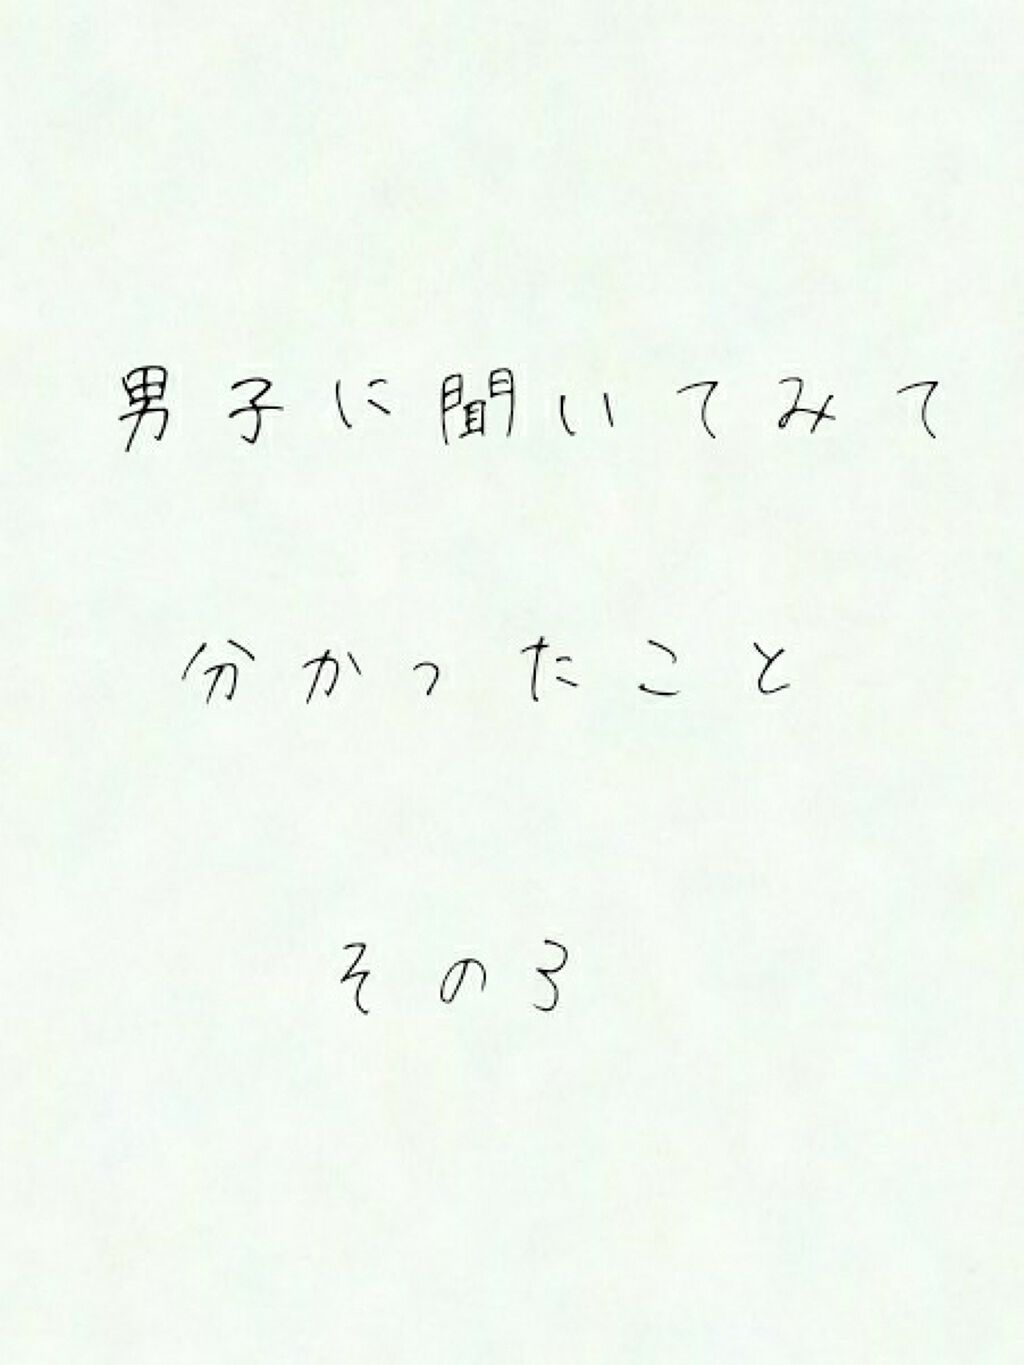 男子に聞いてみて
分かったこと
その3